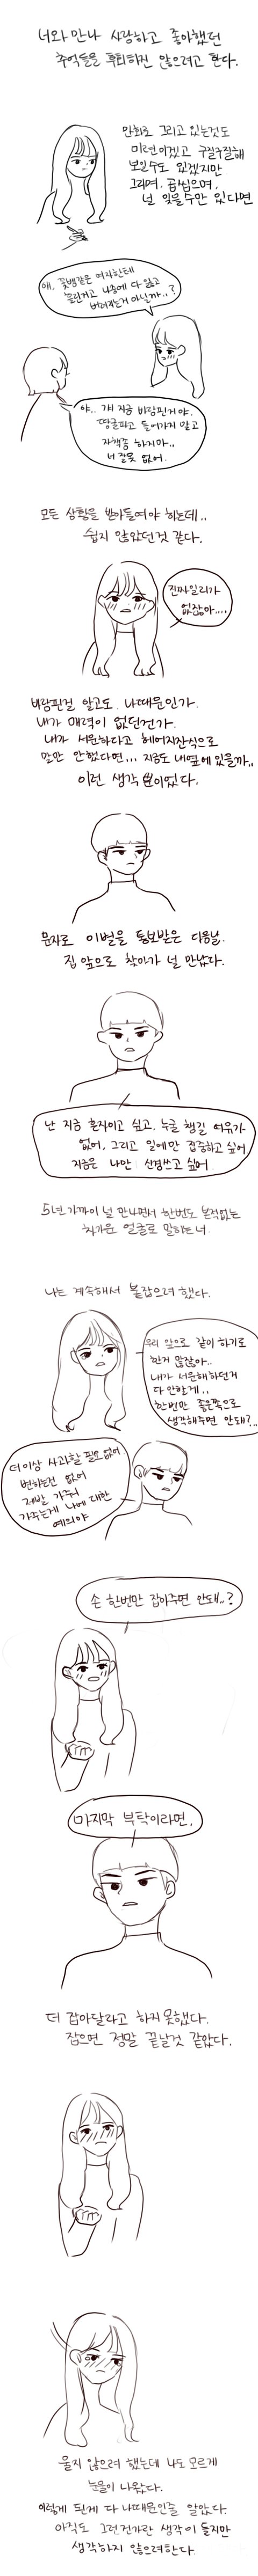 너와 만나 사랑하고 좋아했던
추억들을 후회하진 않으려고 한다.
만화로 그리고 있는것도
미련이겠고 구질구질해
보일수도 있겠지만
그리며, 곱씹으며,
널 잊을수만 있다면
얘, 꽃뱀같은 여자한테
홀린거고 나중에 다 잃고
버려지는거 아닐까..?
야.. 걔 지금 바람핀거야.
땅굴파고 들어가지 말고
자책좀 하지마..
너 잘못 없어.
모든 상황을 받아들여야 하는데..
쉽지 않았던것 같다.
진짜일리가
없잖아....
바람핀걸 알고도. 나때문인가.
내가 매력이 없던건가.
내가 서운하다고 헤어지잔식으로
말만 안했다면... 지금도 내옆에 있을까..
이런 생각 뿐이었다.
문자로 이별을 통보받은 다음날.
집 앞으로 찾아가 널 만났다.
난 지금 혼자이고 싶고. 누굴 챙길 여유가
없어, 그리고 일에만 집중하고 싶어
지금은 나만 신경쓰고 싶어
5년 가까이 널 만나면서 한번도 본적없는
차가운 얼굴로 말하는 너.
나는 계속해서 붙잡으려 했다.
우리 앞으로 같이 하기로
한거 많잖아..
내가 서운해하던거
다 안할게..
한번만 좋은쪽으로
생각해주면 안돼?..
더이상 사과할 필요 없어
변하는건 없어
제발 가줘
가주는게 나에 대한
예의야
손 한번만 잡아주면 안돼..?
마지막 부탁이라면.
더 잡아달라고 하지 못했다.
잡으면 정말 끝날것 같았다.
울지 않으려 했는데 나도 모르게
눈물이 나왔다.
이렇게 된게 다 나때문인줄 알았다.
아직도 그런건가란 생각이 들지만
생각하지 않으려한다.